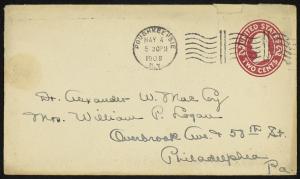 POUGHKEEPSIE
MAY 4
5 30 PM
1908
N.Y.
UNITED STATES
TWO CENTS
Dr. Alexander W. MacCoy
Mrs. William P. Logan
Overbrook Ave & 58th St
Philadelphia
Pa.